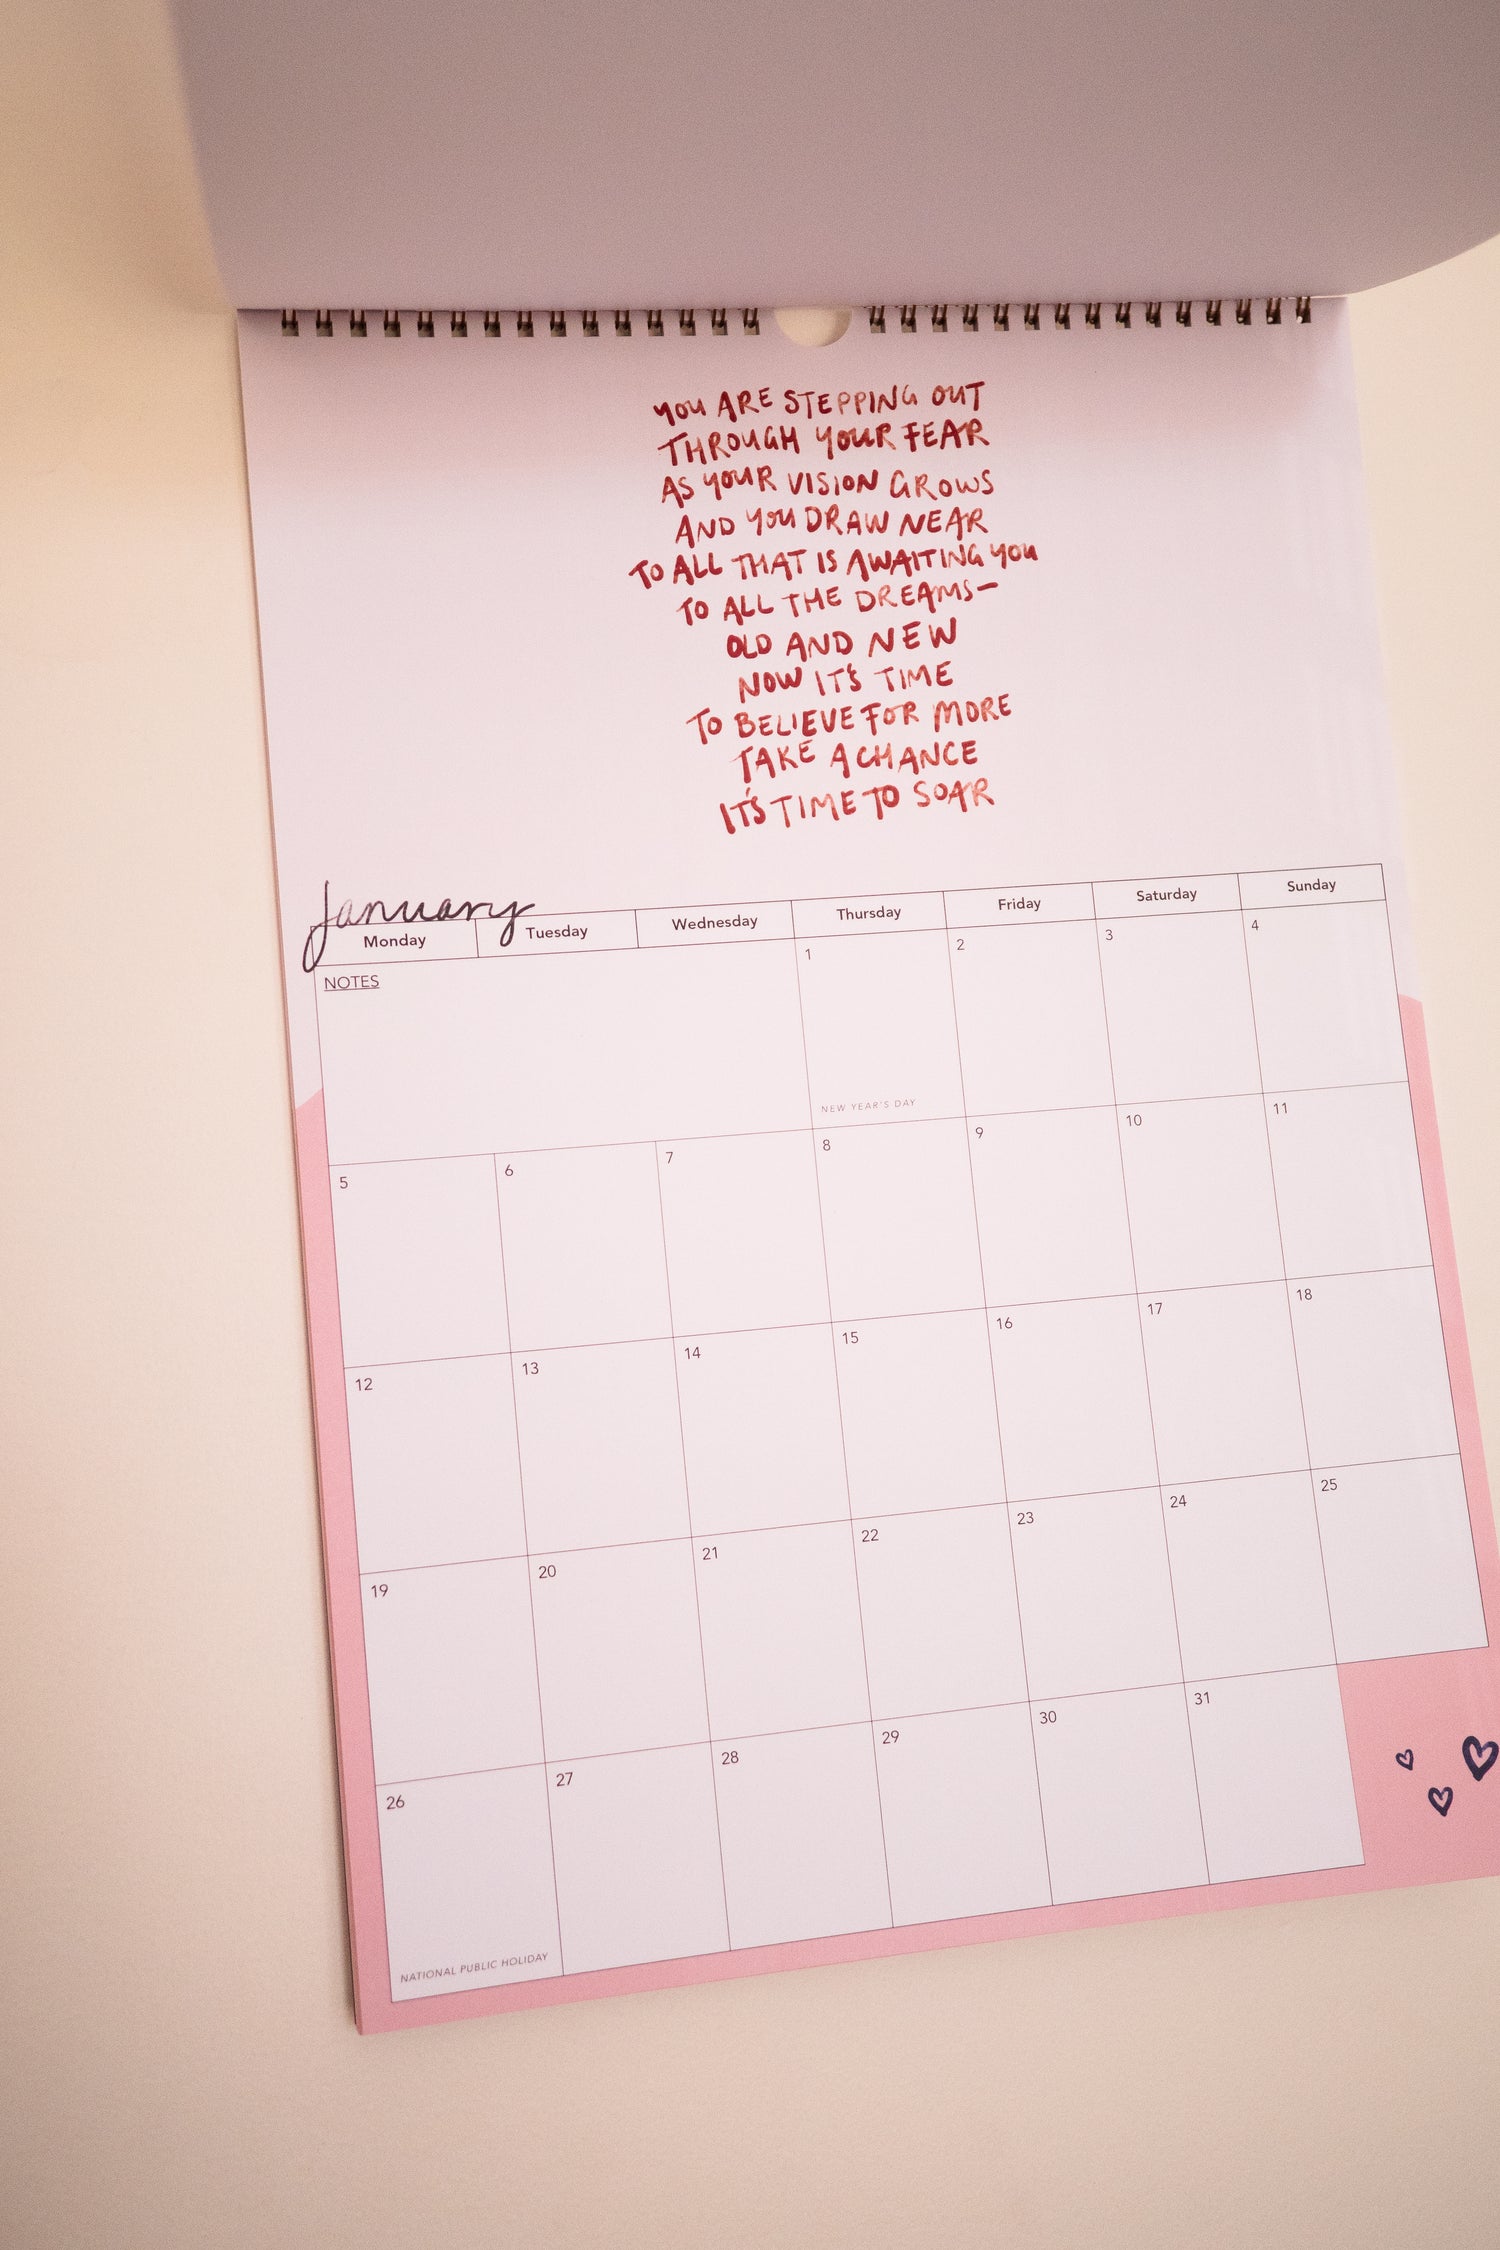 YOU ARE STEPPING OUT
THROUGH YOUR FEAR
AS YOUR VISION GROWS
AND YOU DRAW NEAR
TO ALL THAT IS AWAITING YOU
TO ALL THE DREAMS—
OLD AND NEW
NOW IT'S TIME
TO BELIEVE FOR MORE
TAKE A CHANCE
IT'S TIME TO SOAR
January
Monday Tuesday Wednesday Thursday Friday Saturday Sunday
NOTES 1 2 3 4
NEW YEAR'S DAY
5 6 7 8 9 10 11
12 13 14 15 16 17 18
19 20 21 22 23 24 25
26 27 28 29 30 31
NATIONAL PUBLIC HOLIDAY